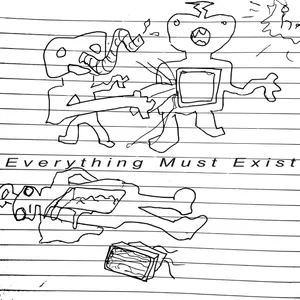 Everything Must Exist